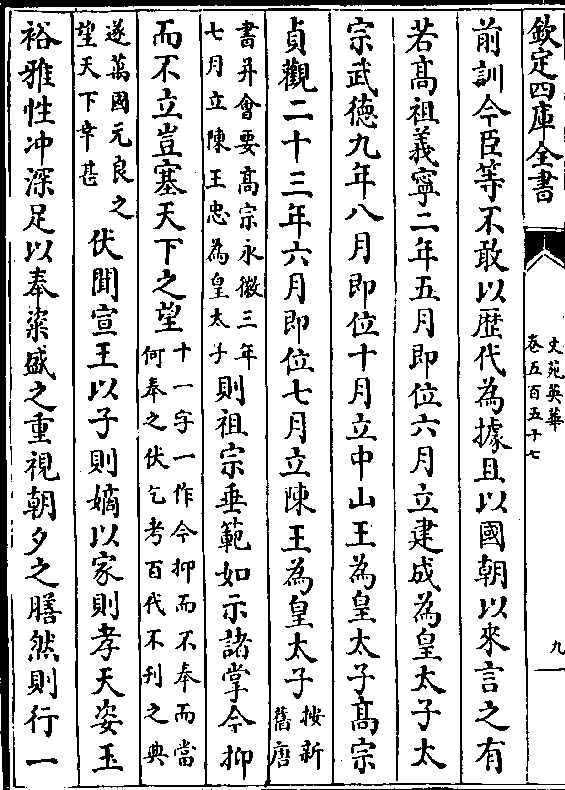 欽定四庫全書
文苑英華
卷五百五十七
九
前訓今臣等不敢以歴代為據且以國朝以來言之有
若髙祖義寧二年五月即位六月立建成為皇太子太
宗武徳九年八月即位十月立中山王為皇太子髙宗
貞觀二十三年六月即位七月立陳王為皇太子按新舊唐
書并會要髙宗永徽三年七月立陳王忠為皇太子則祖宗垂範如示諸掌今抑
而不立豈塞天下之望十一字一作今抑而不奉而當何奉之伏乞考百代不刊之典
遂萬國元良之望天下幸甚伏聞宣王以子則嫡以家則孝天姿玉
裕雅性冲深足以奉粢盛之重視朝夕之膳然則行一